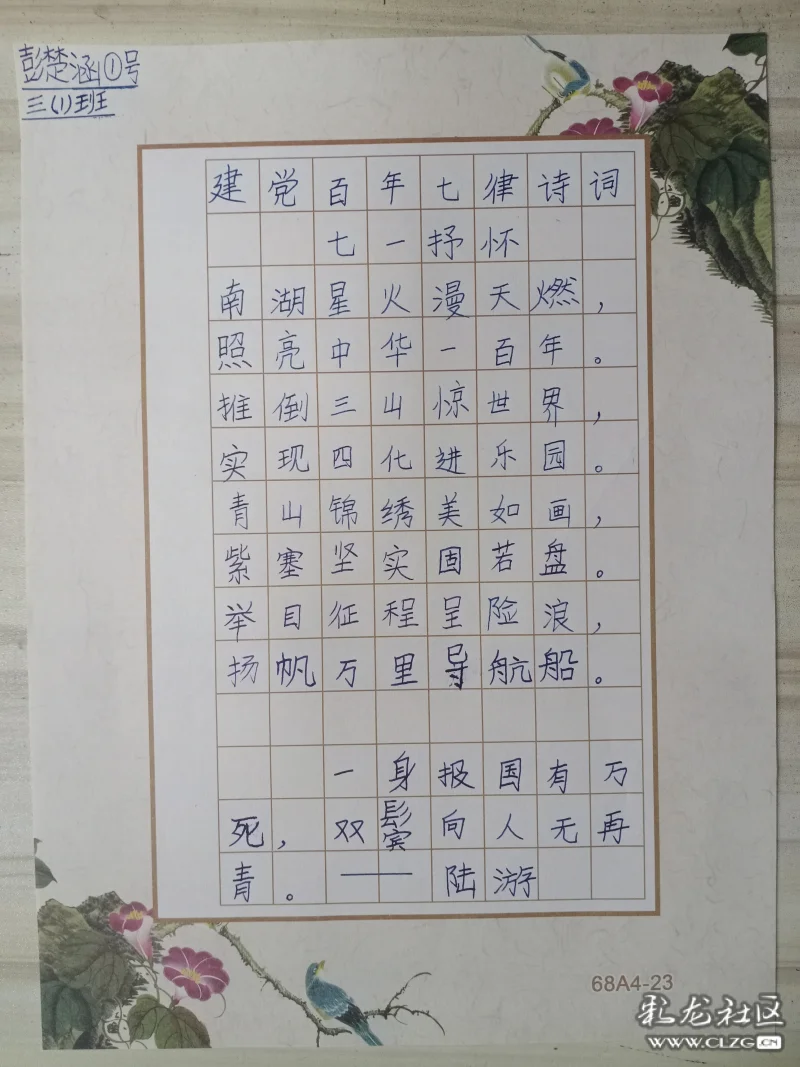 彭楚涵①号
三(1)班
建党百年七律诗词
七一抒怀
南湖星火漫天燃，
照亮中华一百年。
推倒三山惊世界，
实现四化进乐园。
青山锦绣美如画，
紫塞坚实固若盘。
举目征程呈险浪，
扬帆万里导航船。
一身报国有万
死，双鬓向人无再
青。——陆游
68A4-23
彩龙社区
WWW.CLZG.CN